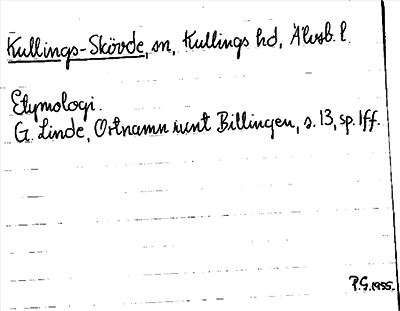 Kullings-Skövde, sn, Kullings hd, Älvsb. l.
Etymologi.
G. Linde, Ortnamn runt Billingen, s. 13, sp. 1 ff.
P.G. 1955.